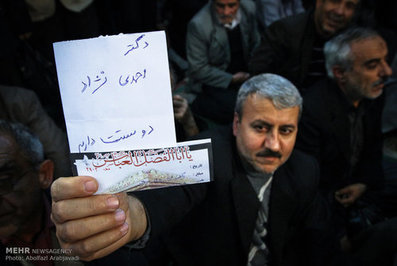 دکتر
احمدی نژاد
دوستت داریم
یا اباالفضل العباس
MEHR NEWSAGENCY
Photo: Abolfazl Arabjavadi